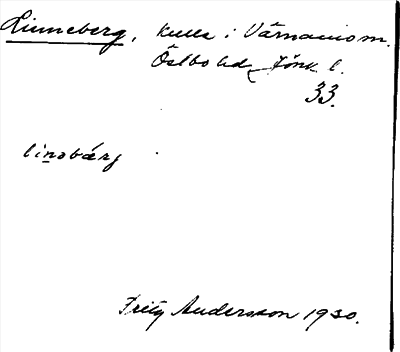 Linneberg, kulle i Värnamo sn.
Östbo hd Jönk. l.
33.
linəbärj
Fritz Andersson 1930.